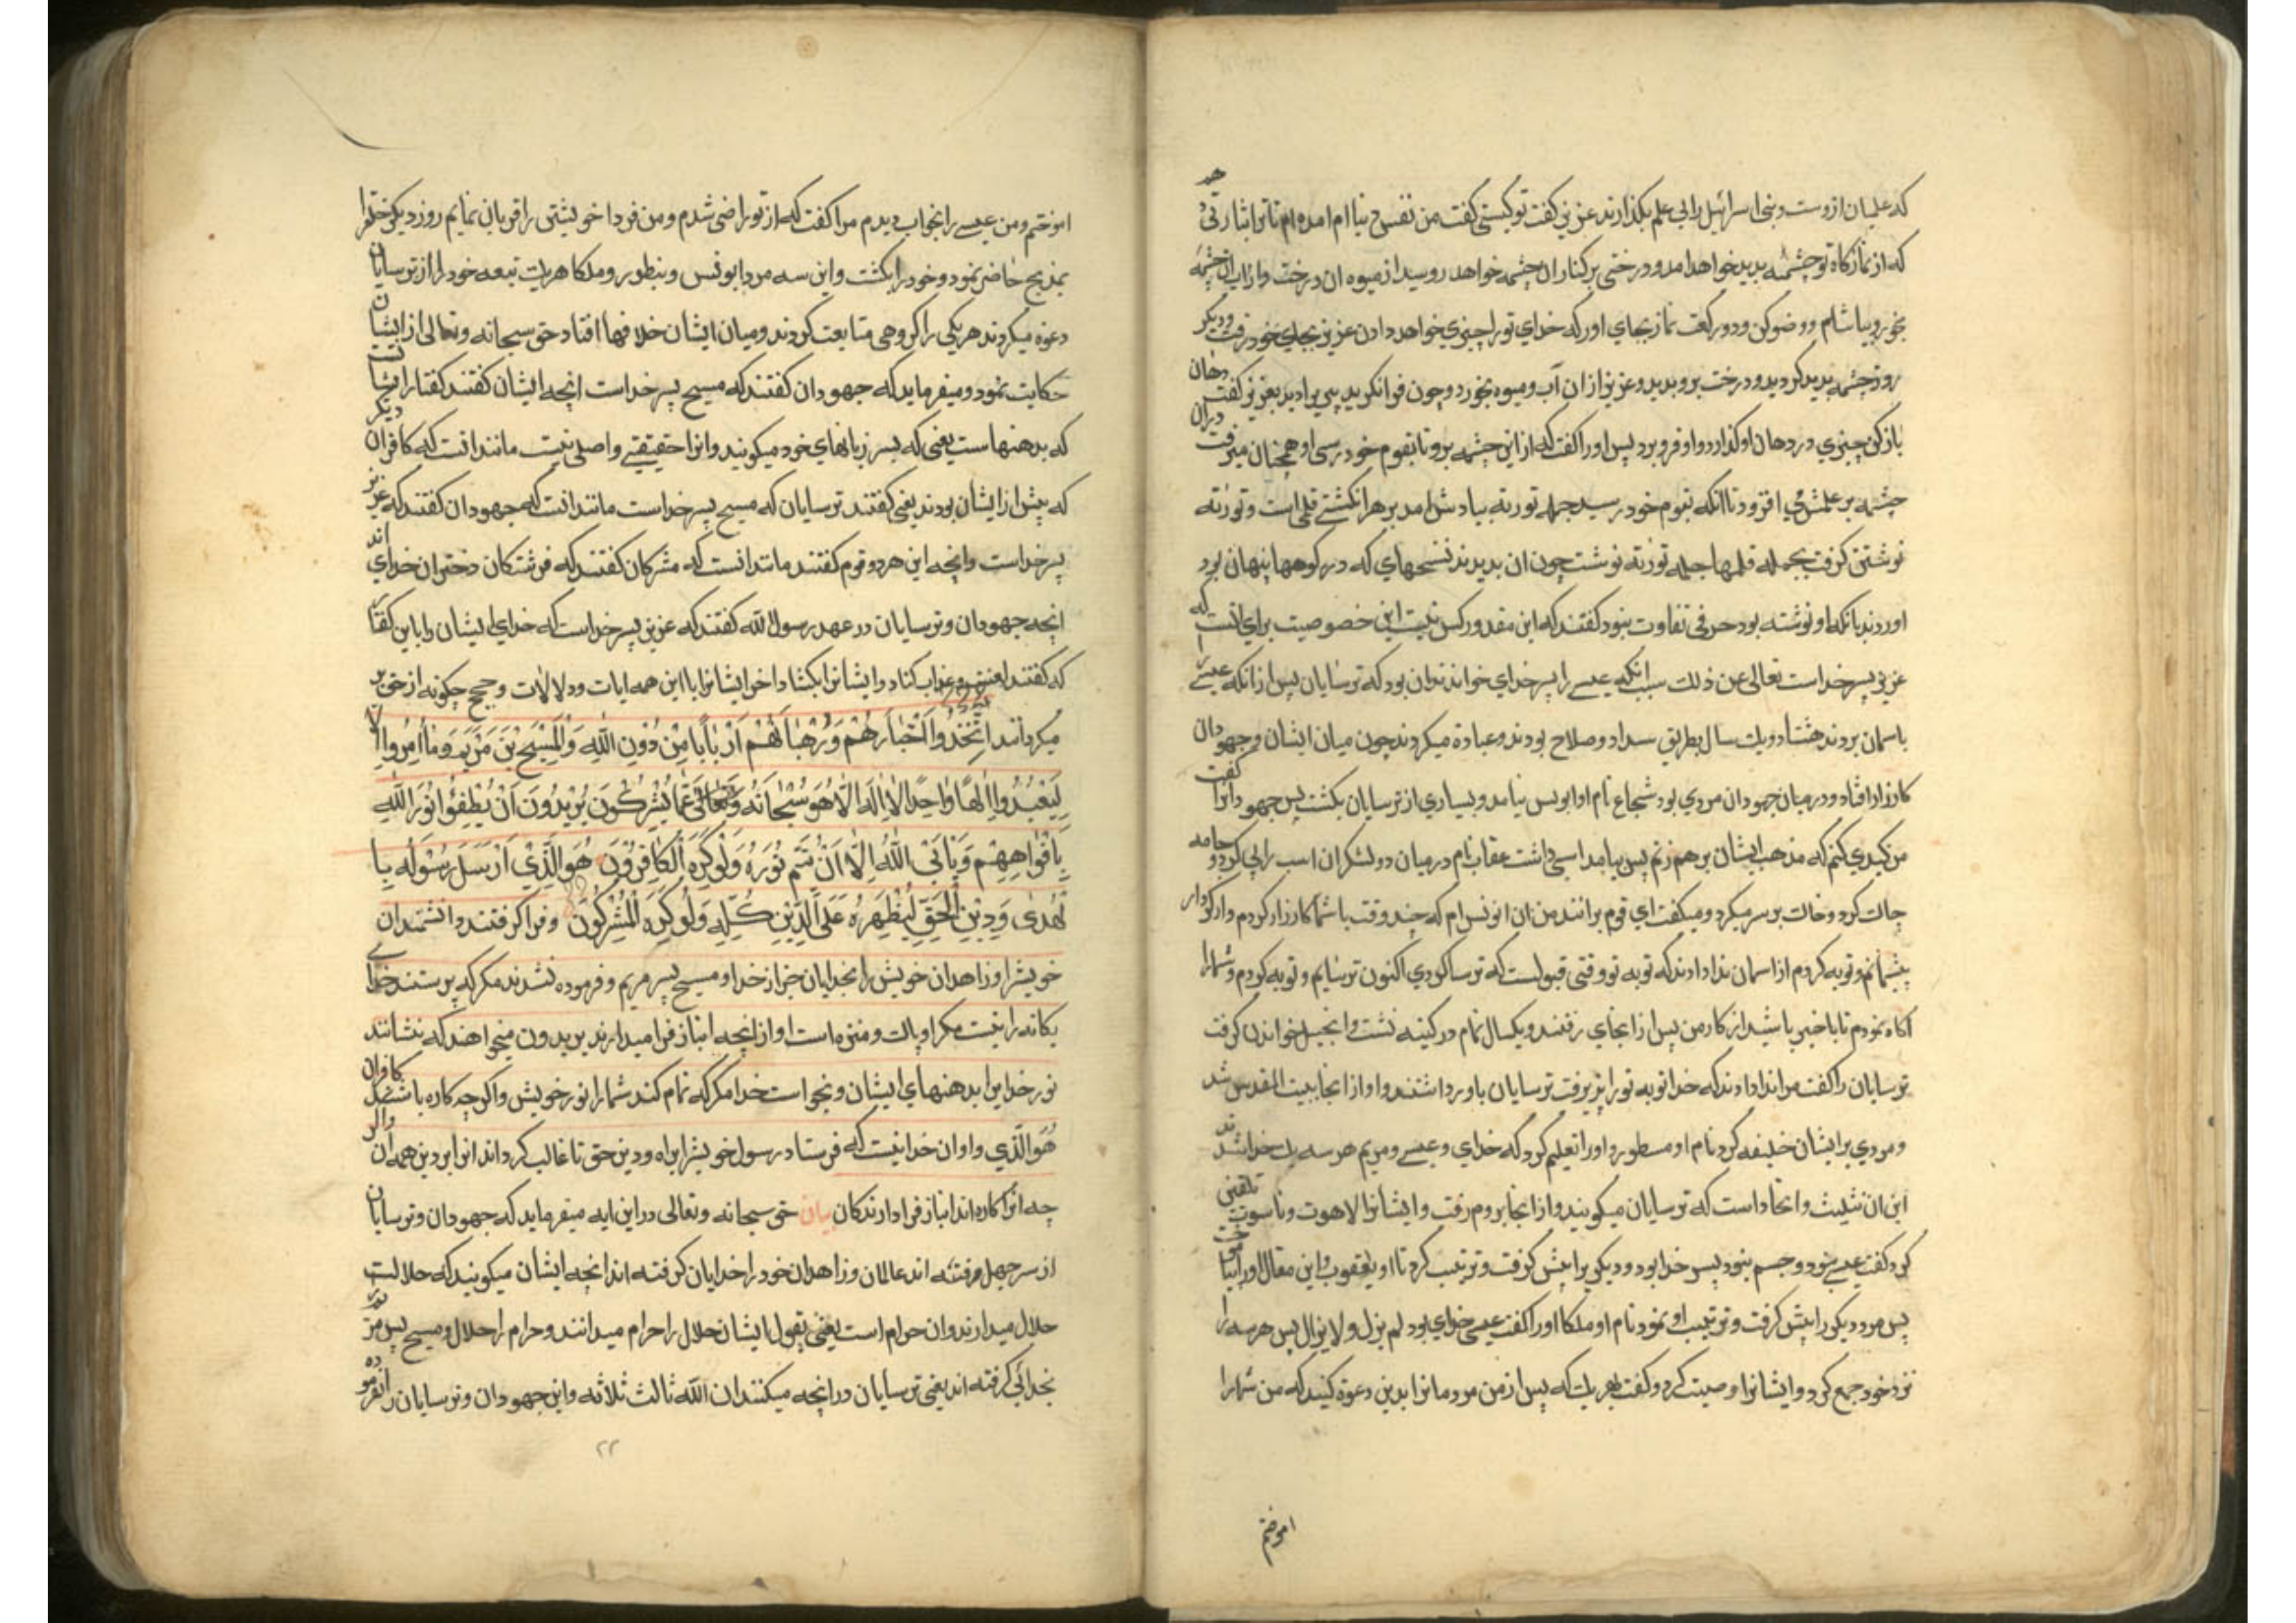 که علمیان ازوست و بنی اسرائیل را بی علم بکذارند عزیر کفت تو کیستی کفت من نفس دنیا ام امده ام تا ترا بشارتی دهد
که از نمازکاه تو چشمه پدید خواهد امد و درختی بر کنار ان چشمه خواهد روسید از میوه ان درخت و از اب ان چشمه
بخور و بیاشام و وضو کن و دو رکعت نماز بجای اور که خدای تو را چیزی خواهد دادن عزیر بجای خود رفت و دیکر
روز چشمه پدید کردید و درخت بروید و عزیر از ان آب و میوه بخورد و چون فرا نکرید پیری را دید بعزیر کفت دهان
باز کن چیزی در دهان او کذارد و او فرو برد پس او را کفت که از این چشمه برو تا بقوم خود رسی او همچنان میرفت دران
چشمه بر علمش می افزود تا انکه بقوم خود رسید جمله توریه بیادش امد بر هر انکشتی قلمی بست و توریه
نوشتن کرفت بجمله قلمها جمله توریه نوشت چون ان بدیدند نسخهای که در کوهها پنهان بود
اوردند با انکه او نوشته بود حرفی تفاوت نبود کفتند که این مقدور کس نیست این خصوصیت برای انست که
عزیر پسر خداست تعالی عن ذلک سبب انکه عیسی را پسر خدای خواندند ان بود که ترسایان پس از انکه عیسی را
باسمان بردند هشتاد و یک سال بطریق سداد و صلاح بودند و عبادة میکردند چون میان ایشان و جهودان
کارزار افتاد و در میان جهودان مردی بود شجاع نام او ابویس بیامد و بسیاری از ترسایان بکشت پس جهودانرا کفت
من کیدی کنم که مذهب ایشان بر هم زنم پس بیامد اسبی داشت عقاب نام در میان دو لشکر ان اسب را پی کرد و جامه
چاک کرد و خاک بر سر میکرد و میکفت ای قوم بدانند من ان ابونس ام که چند وقت با شما کارزار کردم و از کردار
پشیمانم و توبه کردم از اسمان ندا دادند که توبه تو وقتی قبولست که ترسا کردی اکنون ترسایم و توبه کردم و شما را
آکاه نمودم تا باخبر باشید از کار من پس از انجای رفتند و یکسال تمام در کنیسه نشست و انجیل خواندن کرفت
ترسایان را کفت مرا ندا دادند که خدا توبه تو را پذیرفت ترسایان باور داشتند و او از انجا ببیت المقدس شد
و مردی بر ایشان خلیفه کرد نام او مسطور و او را تعلیم کرد که خدای و عیسی و مریم هر سه یک خدا اند
این ان تثلیث و اتحاد است که ترسایان میکویند و از انجا بروم رفت و ایشانرا لاهوت و ناسوت تلقین
کرد کفت عیسی نبود و جسم نبود پس خدا بود و دیکری را پیش کرفت و ترتیب کرد نام او یعقوب و این مقال او را بیاموخت
پس مرد دیکر را پیش کرفت و ترتیب او نمود نام او ملکا او را کفت عیسی خدای بود لم یزل و لا یزال پس هر سه را
نزد خود جمع کرد و ایشانرا وصیت کرد و کفت هر یک که پس از من مردمانرا بدین دعوة کنید که من شما را
اموختم
اموختم و من عیسی را بخواب دیدم مرا کفت که از تو راضی شدم و من فردا خویشتن را قربان نمایم روز دیکر خود را
بمذبح حاضر نمود و خود را بکشت و این سه مرد ابونس و بنطور و ملکا هریک تبعه خود را از ترسایان
دعوة میکردند هر یکی را کروهی متابعت کردند و میان ایشان خلافها افتاد حق سبحانه و تعالی از ایشان
حکایت نمود و میفرماید که جهودان کفتند که مسیح پسر خداست انچه ایشان کفتند کفتار ایشانست
که بدهنهاست یعنی که بسر زبانهای خود میکویند و انرا حقیقتی و اصلی نیست مانند انست که کافران دیکر
که پیش از ایشان بودند یعنی کفتند ترسایان که مسیح پسر خداست مانند انست که جهودان کفتند که عزیر
پسر خداست و انچه این هر دو قوم کفتند مانند انست که مشرکان کفتند که فرشتکان دختران خدای اند
انچه جهودان و ترسایان در عهد رسول الله کفتند که عزیر پسر خداست که خدای ایشان را باین کفتار
که کفتند لعنت و عذاب کناد و ایشانرا بکشاد اخر ایشانرا با این همه ایات و دلالات و حجج چکونه از حق بر
میکردانند اِتَّخَذُوا اَحْبَارَهُمْ وَرُهْبَانَهُمْ اَرْبَابًا مِنْ دُونِ اللّٰهِ وَالْمَسِيحَ بْنَ مَرْيَمَ وَمَا اُمِرُوا اِلَّا
لِيَعْبُدُوا اِلٰهًا وَاحِدًا لَا اِلٰهَ اِلَّا هُوَ سُبْحَانَهُ وَتَعَالٰى عَمَّا يُشْرِكُونَ يُرِيدُونَ اَنْ يُطْفِئُوا نُورَ اللّٰهِ
بِاَفْوَاهِهِمْ وَيَاْبَى اللّٰهُ اِلَّا اَنْ يُتِمَّ نُورَهُ وَلَوْ كَرِهَ الْكَافِرُونَ هُوَ الَّذِي اَرْسَلَ رَسُولَهُ بِا
لْهُدٰى وَدِينِ الْحَقِّ لِيُظْهِرَهُ عَلَى الدِّينِ كُلِّهِ وَلَوْ كَرِهَ الْمُشْرِكُونَ وفرا کرفتند دانشمندان
خویشرا و زاهدان خویش را بخدایان جز از خدا و مسیح پسر مریم و فرموده نشدند مکر که پرستند خدای
یکانه را نیست مکر او پاک و منزه است او از انچه انباز فرا میدارند یریدون میخواهند که بنشانند
نور خدایرا بدهنهای ایشان و نخواست خدا مکر که تمام کند شما را نور خویش و اکر چه کاره باشند کافران
هُوَ الَّذي و او ان خدائیست که فرستاد رسول خویشرا براه و دین حق تا غالب کرداند انرا بر دین همه ان و اکر
چه انرا کاره اند انباز فرا دارندکان بیان حق سبحانه و تعالی در این ایه میفرماید که جهودان و ترسایان
از سر جهل و فتنه اند عالمان و زاهدان خود را خدایان کرفته اند انچه ایشان میکویند که حلالست
حلال میدارند و ان حرام است یعنی بقول ایشان حلال را حرام میدانند و حرام را حلال و مسیح پسر مریم را
بخدائی کرفته اند یعنی ترسایان در انچه میکنند ان الله ثالث ثلاثه و این جهودان و ترسایان را نفرموده اند
۲۲